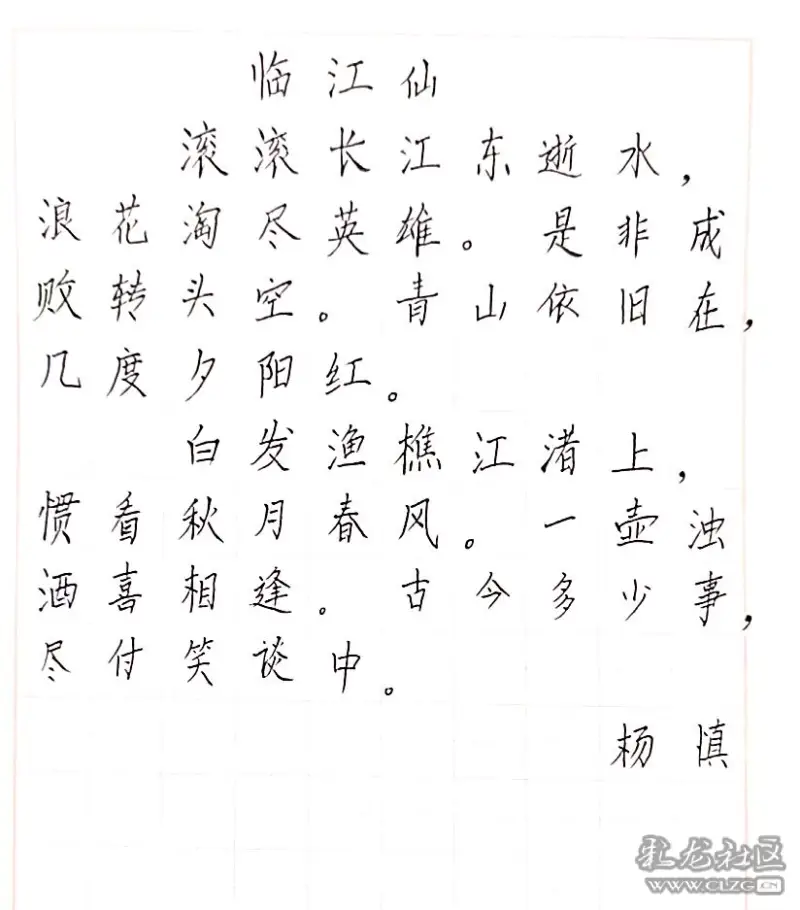 临江仙
滚滚长江东逝水，
浪花淘尽英雄。是非成
败转头空。青山依旧在，
几度夕阳红。
白发渔樵江渚上，
惯看秋月春风。一壶浊
酒喜相逢。古今多少事，
尽付笑谈中。
杨慎
乳龙社区
WWW.CLZG.CN